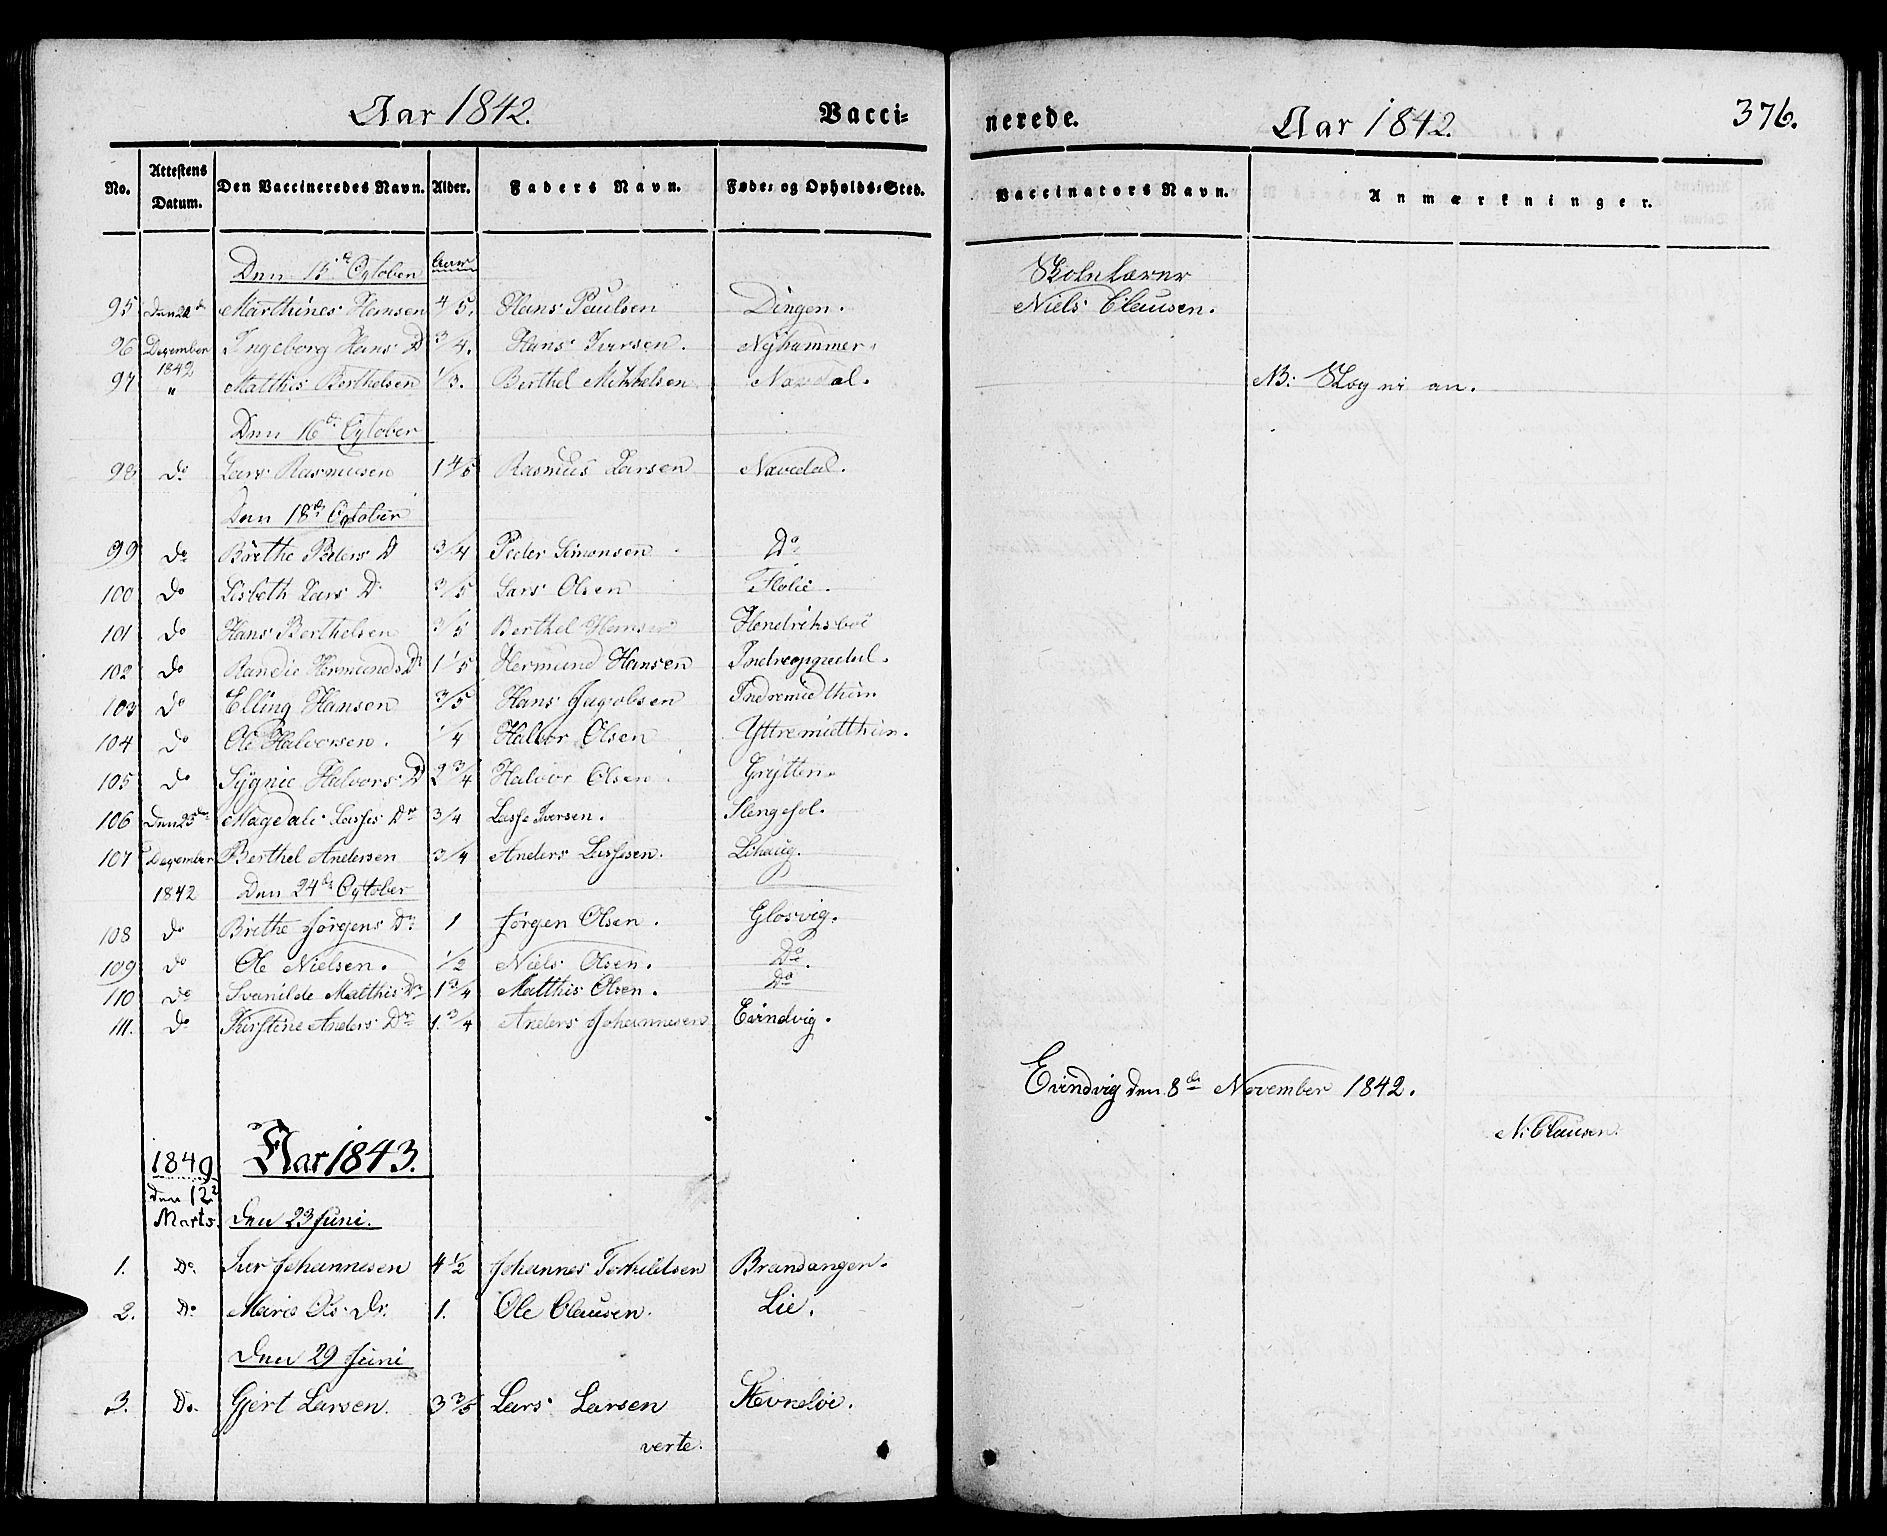 Aar 1842. Vacci=
No. Attestens Datum. Den Vaccineredes Navn. Alder. Faders Navn. Føde= og Opholds=Sted.
Den 15de Octoben Aar
95 Den 20de Marthines Hansen 4/5. Hans Paulsen Dingen.
96 Dezember Ingeborg Hans D 3/4. Hans Iversen. Nÿhammer.
1842
97 " Matthis Berthelsen 1/3. Berthel Mikkelsen Navedal.
Den 16de October
98 Do Lars Rasmusen 1 4/5 Rasmus Larsen Navedal.
Den 18de October
99 Do Birethe Peders D 3/4 Peder Simonsen Do
100 Do Lisbeth Lars D. 3/5 Lars Olsen Flolie.
101 Do Hans Berthelsen 3/5 Berthel Hansen Hendriksboe
102 Do Randie Hermunds Dr 1 1/5 Hermund Hansen Indreopgedal.
103 Do Elling Hansen 3/5 Hans Jacobsen Indremidthun
104 Do Ole Halvorsen. 1/4 Halvor Olsen Yttremidthun.
105 Do Sÿgnie Halvors D 2 3/4 Halvor Olsen. Grÿtten.
106 Den 25de Magdali Lasses Dr 3/4 Lasse Iversen. Slengesol.
107 Dezember Berthel Andersen 3/4 Anders Lassesen. Lihaug.
1842 Den 24de October
108 Do Brithe Jørgens Dr 1 Jørgen Olsen. Glosvig.
109 Do Ole Nielsen. 1/2 Niels Olsen. Do
110 Do Svanilde Matthis Dr 1 3/4 Matthis Olsen. Do
111. Do Kirstine Anders Dr 1. 3/4 Anders Johannesen Evindvig.
1849 Aar 1843.
den 12te
Marts. den 23 Juni.
1. Do. Iver Johannesen 4 1/2 Johannes Torkildsen Brandangen.
2. Do Maris Ols Dr. 1. Ole Clausen. Lie.
Den 29 Juni
3. Do. Gjert Larsen. 3 3/5 Lars Larsen
verte.
nerede. Aar 1842. 376.
Vaccinators Navn. Anmærkninger.
Skolelærer
Niels Clausen.
NB: Slog ei an.
Evindvig den 8de November 1842.
N: Clausen.